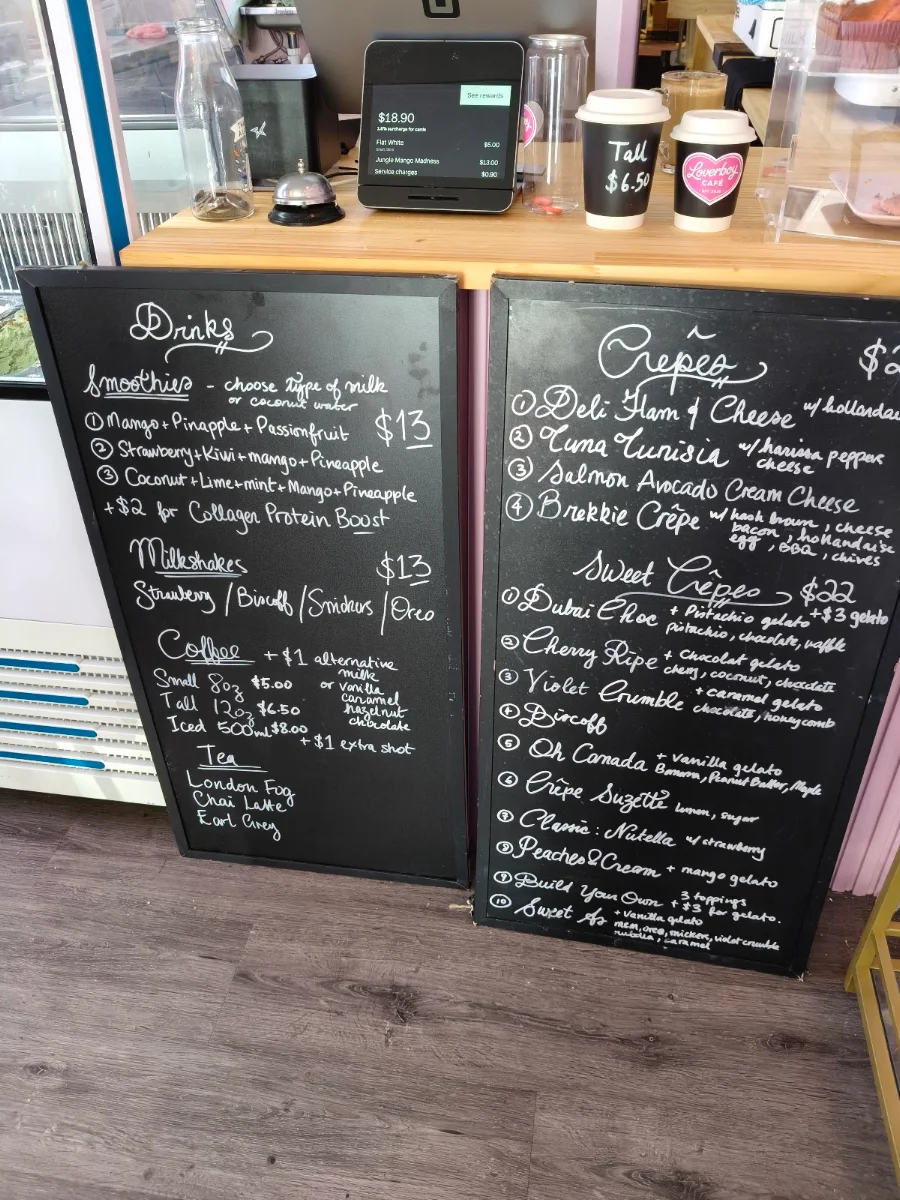 See rewards
$18.90
Flat White $5.00
Jungle Mango Madness $13.00
Service charges $0.90
Tall
$6.50
Loverboy
CAFÉ
Drinks
Smoothies - choose type of milk
or coconut water
① Mango + Pinapple + Passionfruit $13
② Strawberry + Kiwi + mango + Pineapple
③ Coconut + Lime + mint + Mango + Pineapple
+ $2 for Collagen Protein Boost
Milkshakes $13
Strawberry / Biscoff / Snickers / Oreo
Coffee + $1 alternative
milk
or vanilla
caramel
hazelnut
chocolate
Small 8oz $5.00
Tall 12oz $6.50
Iced 500ml $8.00
+ $1 extra shot
Tea
London Fog
Chai Latte
Earl Grey
Crêpes
① Deli Ham & Cheese w/ hollandai
② Tuna Tunisia w/ harissa peppers
cheese
③ Salmon Avocado Cream Cheese
④ Brekkie Crêpe w/ hash brown, cheese
bacon, hollandaise
egg, BBQ, chives
Sweet Crêpes $22
+ $3 gelato
① Dubai Choc + Pistachio gelato
pistachio, chocolate, waffle
② Cherry Ripe + Chocolat gelato
cherry, coconut, chocolate
③ Violet Crumble + caramel gelato
chocolate, honeycomb
④ Biscoff
⑤ Oh Canada + vanilla gelato
Banana, Peanut Butter, Maple
⑥ Crêpe Suzette lemon, sugar
⑦ Classic: Nutella w/ strawberry
⑧ Peaches & Cream + mango gelato
⑨ Build Your Own 3 toppings
+ $3 for gelato.
⑩ Sweet As + vanilla gelato
m&m, oreo, snickers, violet crumble
nutella, caramel